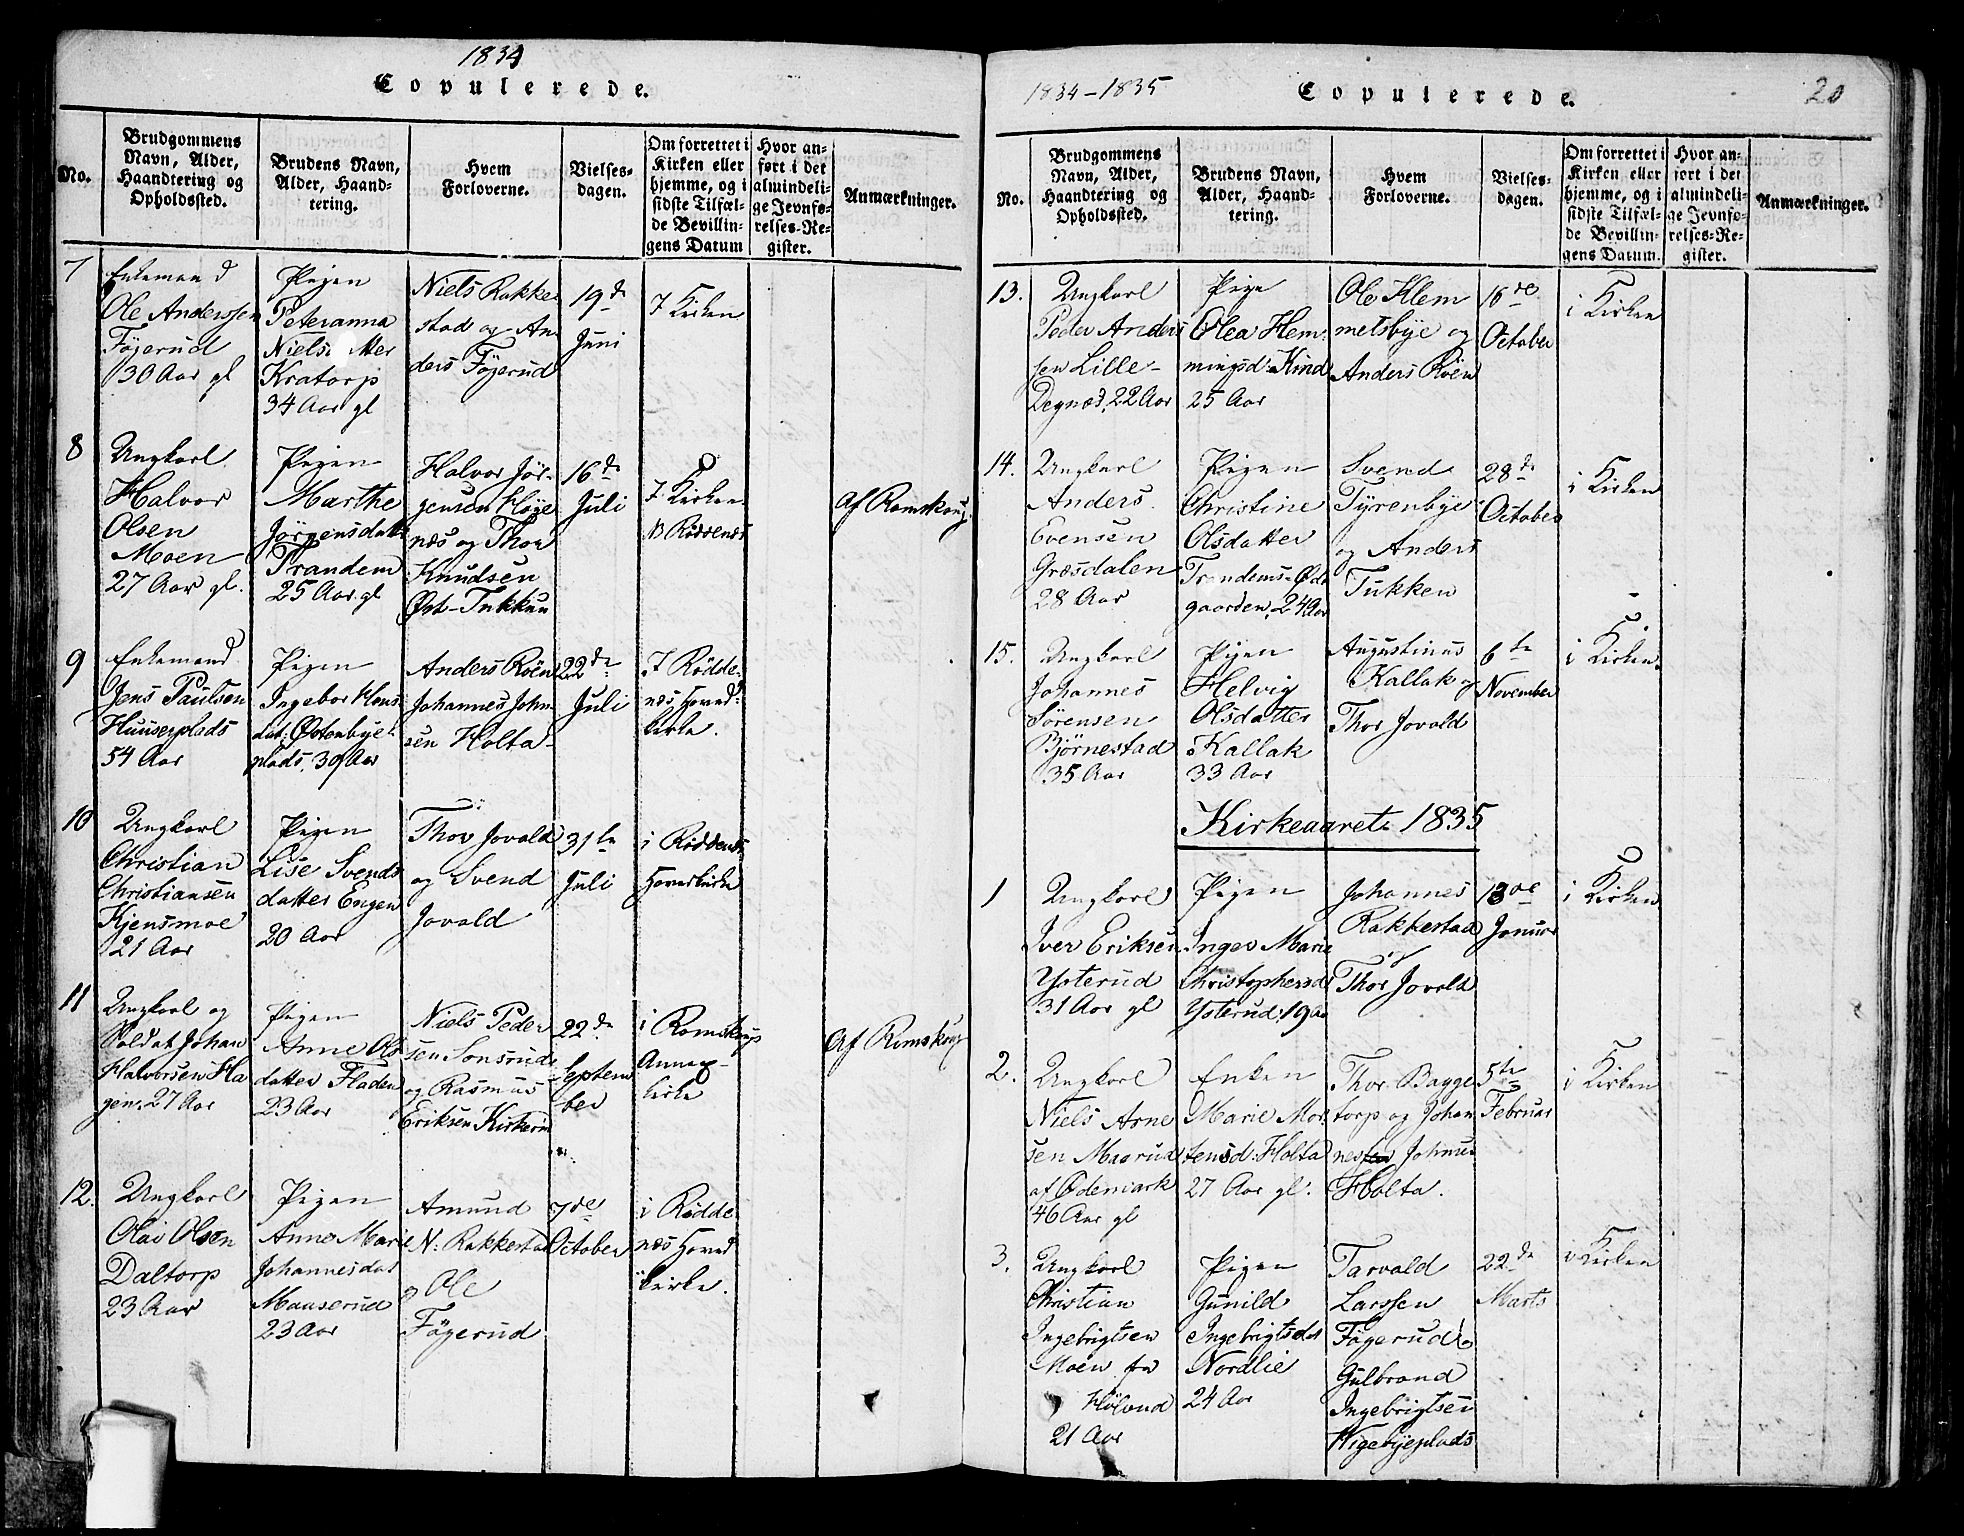 1834
Copulerede.
No.
Brudgommens Navn, Alder, Haandtering og Opholdssted.
Brudens Navn, Alder, Haandtering.
Hvem Forloverne.
Vielsesdagen.
Om forrettet i Kirken eller hjemme, og i sidste Tilfælde Bevillingens Datum
Hvor anført i det almindelige Jevnførelses-Register.
Anmærkninger.
7
Enkemand
Ole Anderssen
Fögerud
30 Aar gl
Pigen
Peteranna
Kratorp
34 Aar gl
Niels Rakke
stad og An
ders Fögerud
19de
Juni
I Kirken
8
Ungkarl
Halvor
Olsen
Moen
27 Aar gl.
Pigen
Marthe
Jörgensdatt
Trandem
25 Aar gl
Halvor Jör-
gensen Höye
næs og Thor
Knudsen
Øst-Tukkun
16de
Juli
I Kirken
Af Romskoug
9
Enkemand
Jens Paulsen
Huuserplads
54 Aar
Pigen
Ingebor Hans
dat: Østenbye
plads, 30 Aar
Anders Röen
Johannes John
sen Holta-
22de
Juli
I Rödde-
næs Hoved
kirke.
10
Ungkarl
Christian
Christiansen
Kjensmoe
21 Aar
Pigen
Lise Svends
datter Engen
20 Aar
Thor Jovald
og Svend
Jovald
31te
Juli
i Röddenæs
Hovedkirke
11
Ungkarl og
Soldat Johan
Halvorsen Ha
gen, 27 Aar
Pigen
Anne Ols
datter Fladen
23 Aar
Niels Peder
sen Sonsrud
og Rasmus
Eriksen Kirkerin
22de
Septem
ber
i Romskoug
Annex-
kirke
Af Romskoug
12.
Ungkarl
Olai Olsen
Daltorp
23 Aar
Pigen
Anne Marie
Johannesdat
Mauserud
23 Aar
Amund
N: Rakkestad
og Ole
Fögerud
7de
October
i Rödde-
næs Hoved
kirke.
1834-1835
Copulerede.
20
No.
Brudgommens Navn, Alder, Haandtering og Opholdssted.
Brudens Navn, Alder, Haandtering.
Hvem Forloverne.
Vielsesdagen.
Om forrettet i Kirken eller hjemme, og i sidste Tilfælde Bevillingens Datum.
Hvor anført i det almindelige Jevnførelses-Register.
Anmærkninger.
13.
Ungkarl
Peder Anders
sen Lille-
Degnæs, 22 Aar
Pige
Olea Hem-
mingsd: Kind
25 Aar
Ole Klem
metsbye og
Anders Röen
16de
October
i Kirken
14.
Ungkarl
Anders
Evensen
Græsdalen
28 Aar
Pigen
Christine
Olsdatter
Trandems-Øde
gaarden, 24 Aar
Svend
Tyrenbye
og Anders
Tukken
28de
October
i Kirken
15.
Ungkarl
Johannes
Sörensen
Björnestad
35 Aar
Pigen
Helvig
Olsdatter
Kallak
33 Aar
Augustinus
Kallak og
Thor Jovald
6te
November
i Kirken
Kirkeaaret 1835
1
Ungkarl
Iver Eriksen
Ysterud
31 Aar gl
Pigen
Inger Marie
Christophersd
Ysterud, 19 Aar
Johannes
Rakkestad
Thor Jovald
13de
Januar
i Kirken
2.
Ungkarl
Niels Arne
sen Maerud
af Ødemark
46 Aar gl
Enken
Marie Mor
tensd: Holta
27 Aar gl.
Thor Bagge
torp og Johan
nes Johnsen
Holta.
5te
Februar
i Kirken
3.
Ungkarl
Christian
Ingebrigtsen
Moen fra
Hölund
21 Aar
Pigen
Gunild
Ingebrigtsdat
Nordlie
24 Aar
Tarvald
Larssen
Fögerud og
Gulbrand
Ingebrigtsen
Higebyeplads
22de
Marts
i Kirken